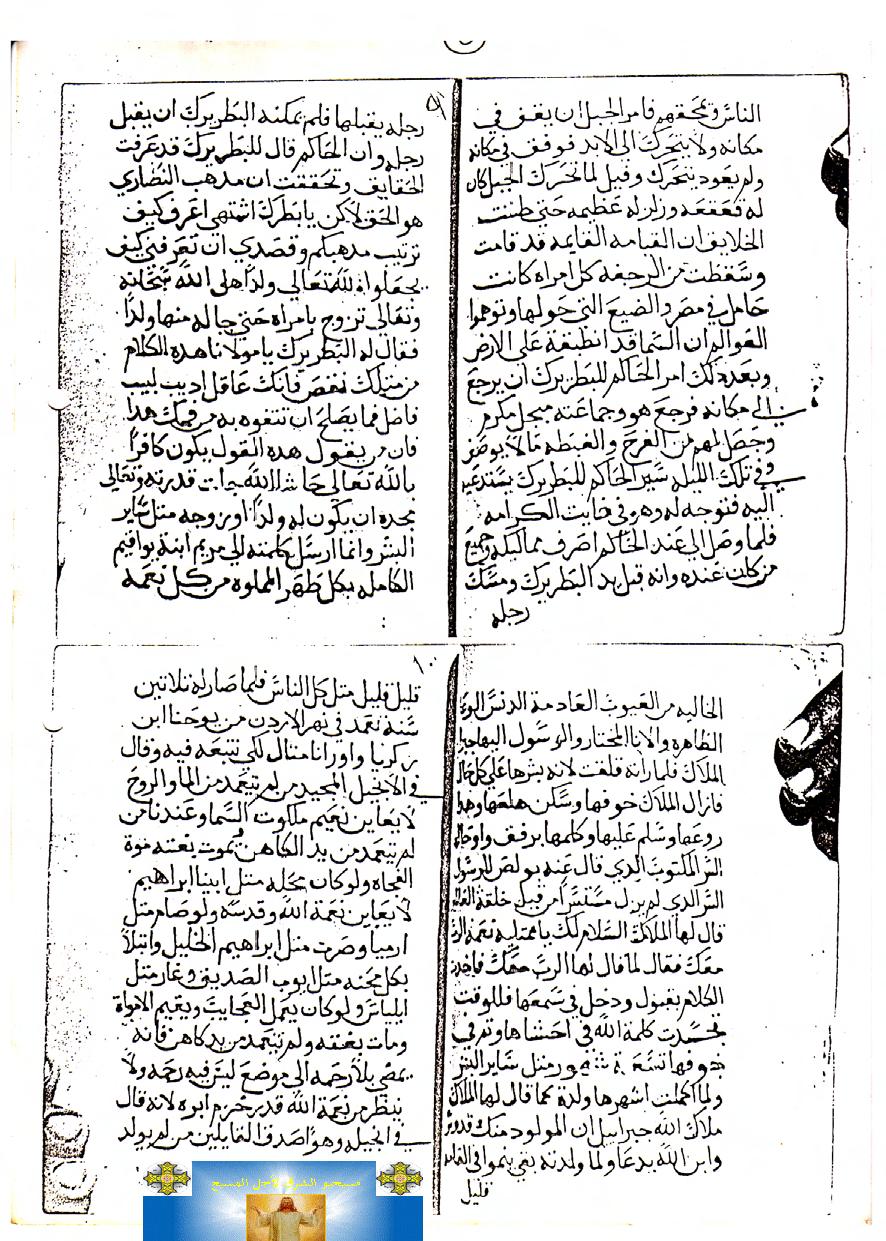 الناس وتمحقهم فامر الجبل ان يقف في
مكانه ولا يتحرك الى الابد فوقف في مكانه
ولم يعود يتحرك وقيل لما تحرك الجبل كان
له قعقعه وزلزله عظيمه حتى ظنت
الخلايق ان القيامه القايمه قد قامت
وسقطت من الرجفه كل امراه كانت
حامل في مصر والضيع التي حولها وتوهموا
العوالم ان السما قد انطبقة على الارض
وبعد ذلك امر الحاكم للبطريرك ان يرجع
الى مكانه فرجع هو وجماعته مبجل مكرم
وحصل لهم من الفرح والغبطه مالا يوصف
وفي تلك الليله سير الحاكم للبطريرك يستدعيه
اليه فتوجه له وهو في غايت الكرامه
فلما وصل الى عند الحاكم اصرف مماليكه وجميع
من كان عنده وانه قبل يد البطريرك ومسك
رجله
٩
رجله يقبلها فلم يمكنه البطريرك ان يقبل
رجله وان الحاكم قال للبطريرك قد عرفت
الحقايق وتحققت ان مدهب النصاري
هو الحق لاكن يا بطرك اشتهي اعرف كيف
ترتيب مدهبكم وقصدي ان تعرفني كيف
تجعلوا لله تعالي ولدًا هل الله سبحانه
وتعالى تزوج بامراه حتى جا له منها ولدًا
فقال له البطريرك يا مولانا هده الكلام
من متلك نقص فانك عاقل اديب لبيب
فاضل فما يصلح ان تتفوه به من فمك هدا
فان من يقول هده القول يكون كافرًا
بالله تعالى حاشا الله جلت قدرته وتعالى
مجده ان يكون له ولدًا او زوجه متل ساير
البشر وانما ارسل كلمته الي مريم ابنة يواقيم
الكامله بكل طهر المملوه من كل نعمه
الخاليه من العيوب العادمة الدنس
الطاهره والابا المختار والرسول البهاجبرا
الملاك فلما راته قلقت لانه بشرها على كل حال
فازال الملاك خوفها وسكن هلعها وهدا
روعها وسلم عليها وكلمها برفق واوحا لها
السر المكتوب الدي قال عنه بولص الرسول
السر الدي لم يزل مستترًا من قبل خلقة العالم
قال لها الملاك السلام لك يا ممتليه نعمة الرب
معك فقال لما قال لها الرب معك
الكلام بقبول ودخل في سمعها فللوقت
تجسدت كلمة الله في احشاها وتم في
جوفها تسعة شهور متل ساير البشر
ولما اكملت اشهرها ولدة كما قال لها الملاك
ملاك الله جبراييل ان المولود منك قدوس
وابن الله يدعا ولما ولدته بقي ينموا في القامه
قليل
١٠
قليل قليل متل كل الناس فلما صار له تلاتين
سنة تعمد في نهر الاردن من يوحنا ابن
زكريا واورانا متال لكي نتبعه فيه وقال
في الانجيل المجيد من لم يتعمد من الما والروح
لا يعاين نعيم ملكوت السما وعندنا من
لم يتعمد من يد الكاهن يموت بغته موة
الفجاه ولو كان محله متل ابينا ابراهيم
لا يعاين نعمة الله وقدسه ولو صام متل
ارميا وصرت متل ابراهيم الخليل وابتلا
بكل محنه متل ايوب الصديق وغار متل
ايلياس ولو كان يعمل العجايب ويقيم الامواة
ومات بغته ولم يتعمد من يد كاهن فانه
يمضي بلا رحمه الى موضع ليس فيه رحمه ولا
ينظر من نعمة الله قدر خرم ابره لانه قال
في انجيله وهو اصدق القايلين من لم يولد
مسيحيو الشرق لأجل المسيح